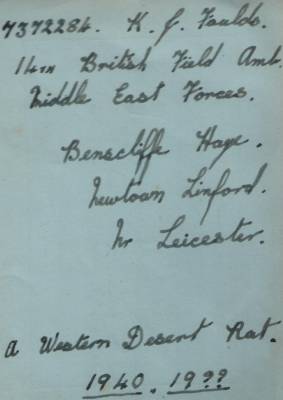 7372284. K. J. Foulds.
14TH British Field Amb.
Middle East Forces.
Benscliffe Haye.
Newtown Linford.
Nr Leicester.
A Western Desert Rat.
1940. 19??